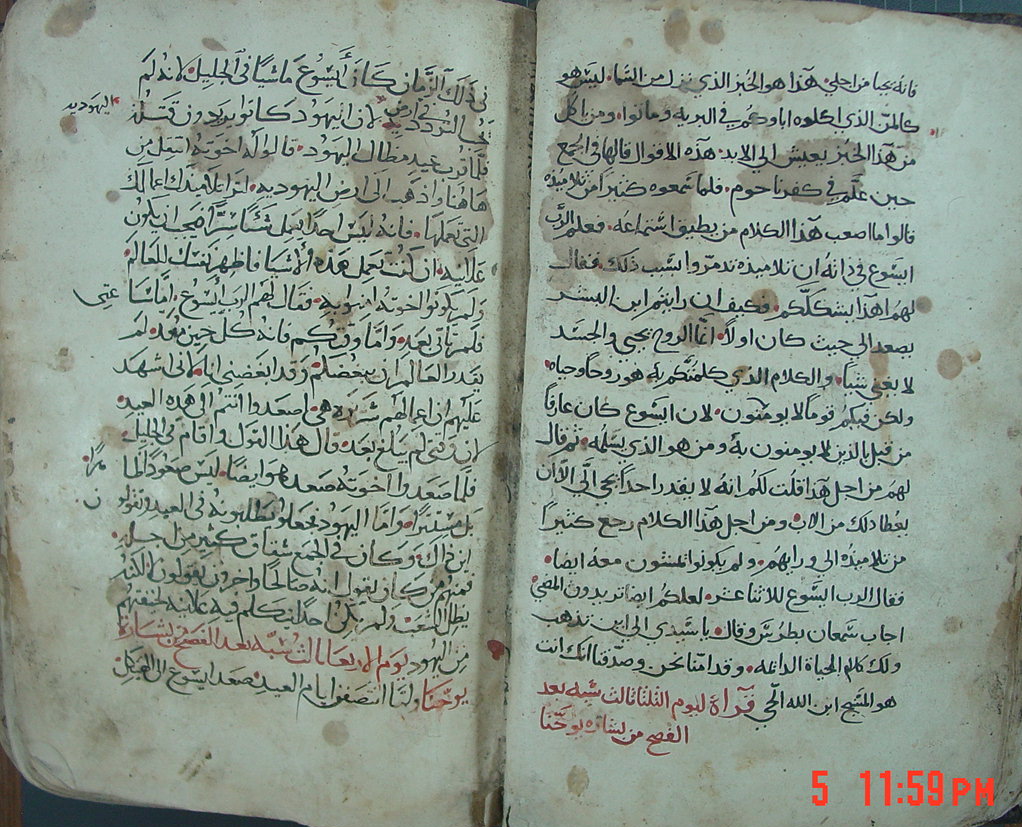 فانه يحيا من اجلي هذا هو الخبز الذي نزل من السما ليس هو
كالمن الذي اكلوه اباوكم في البريه وماتوا ومن اكل
من هذا الخبز يعيش الي الابد هذه الاقوال قالها في المجمع
حين علم في كفرناحوم فلما سمعوه كثيرا من تلاميذه
قالوا ما اصعب هذا الكلام من يطيق استماعه فعلم الرب
ايسوع في ذاته ان تلاميذه تذمروا بسبب ذلك فقال
لهم اهذا يشككم فكيف ان رايتم ابن البشر
يصعد الي حيث كان اولا انما الروح يحيي والجسد
لا يغني شيا والكلام الذي كلمتكم به هو روح وحياه
ولكن فيكم قوما لا يومنون لان ايسوع كان عارفا
من قبل بالذين لا يومنون به ومن هو الذي يسلمه ثم قال
لهم من اجل هذا قلت لكم انه لا يقدر احدا يجي الي الا ان
يعطا ذلك من الاب ومن اجل هذا الكلام رجع كثيرا
من تلاميذه الي ورايهم ولم يكونوا يمشون معه ايضا
فقال الرب ايسوع للاثنا عشر لعلكم ايضا تريدون المضي
اجاب سمعان بطرس وقال يا سيدي الي اين نذهب
ولك كلام الحياة الدايمه وقد امنا نحن وصدقنا انك انت
هو المسيح ابن الله الحي قراة ليوم الثلثا ثالث شبه بعد
الفصح من بشارة يوحنا
في ذلك الزمان كان ايسوع ماشيا في الجليل لانه لم
يحب التردد في ارض لان اليهود كانوا يريدون قتله
اليهوديه
فلما قرب عيد مظال اليهود قالوا له اخوته انتقل من
هاهنا واذهب الي ارض اليهوديه لترا تلاميذك اعمالك
التي تعملها فانه ليس احدا يعمل شيا سرا فيحب ان يكون
علانيه ان كنت تعمل هذه الاشيا فاظهر نفسك للعالم
ولم يكونوا اخوته امنوا به فقال لهم الرب ايسوع اما ساعتي
فلم تاتي بعد واما وقتكم فانه كل حين معد لم
يقدر العالم ان يبغضكم وقد ابغضني انا لاني اشهد
عليهم ان اعمالهم شريره هي اصعدوا انتم الي هذه العيد
لان وقتي لم يبلغ بعد قال هذا القول واقام في الجليل
فلما صعدوا اخوته صعد هو ايضا ليس صعودا ظاهرا
بل مستترا واما اليهود فجعلوا يطلبونه في العيد ويقولون
اين ذاك وكان في الجمع شقاق كثير من اجله
فمنهم من كان يقول انه صالحا واخرون يقولون لا لكنه
يضل الشعب ولم يكن احدا يتكلم فيه علانيه لخيفتهم
من اليهود يوم الاربعا ثالث شبه بعد الفصح بشارة
يوحنا ولما انتصفوا ايام العيد صعد ايسوع الي الهيكل
5 11:59 PM